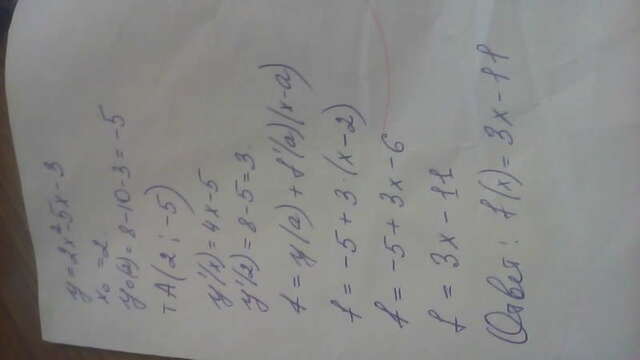 y = 2x² - 5x - 3
x₀ = 2
y₀(2) = 8 - 10 - 3 = -5
т A (2 ; -5)
y'(x) = 4x - 5
y'(2) = 8 - 5 = 3
f = y(a) + f'(a)(x - a)
f = -5 + 3 · (x - 2)
f = -5 + 3x - 6
f = 3x - 11
Ответ: f(x) = 3x - 11